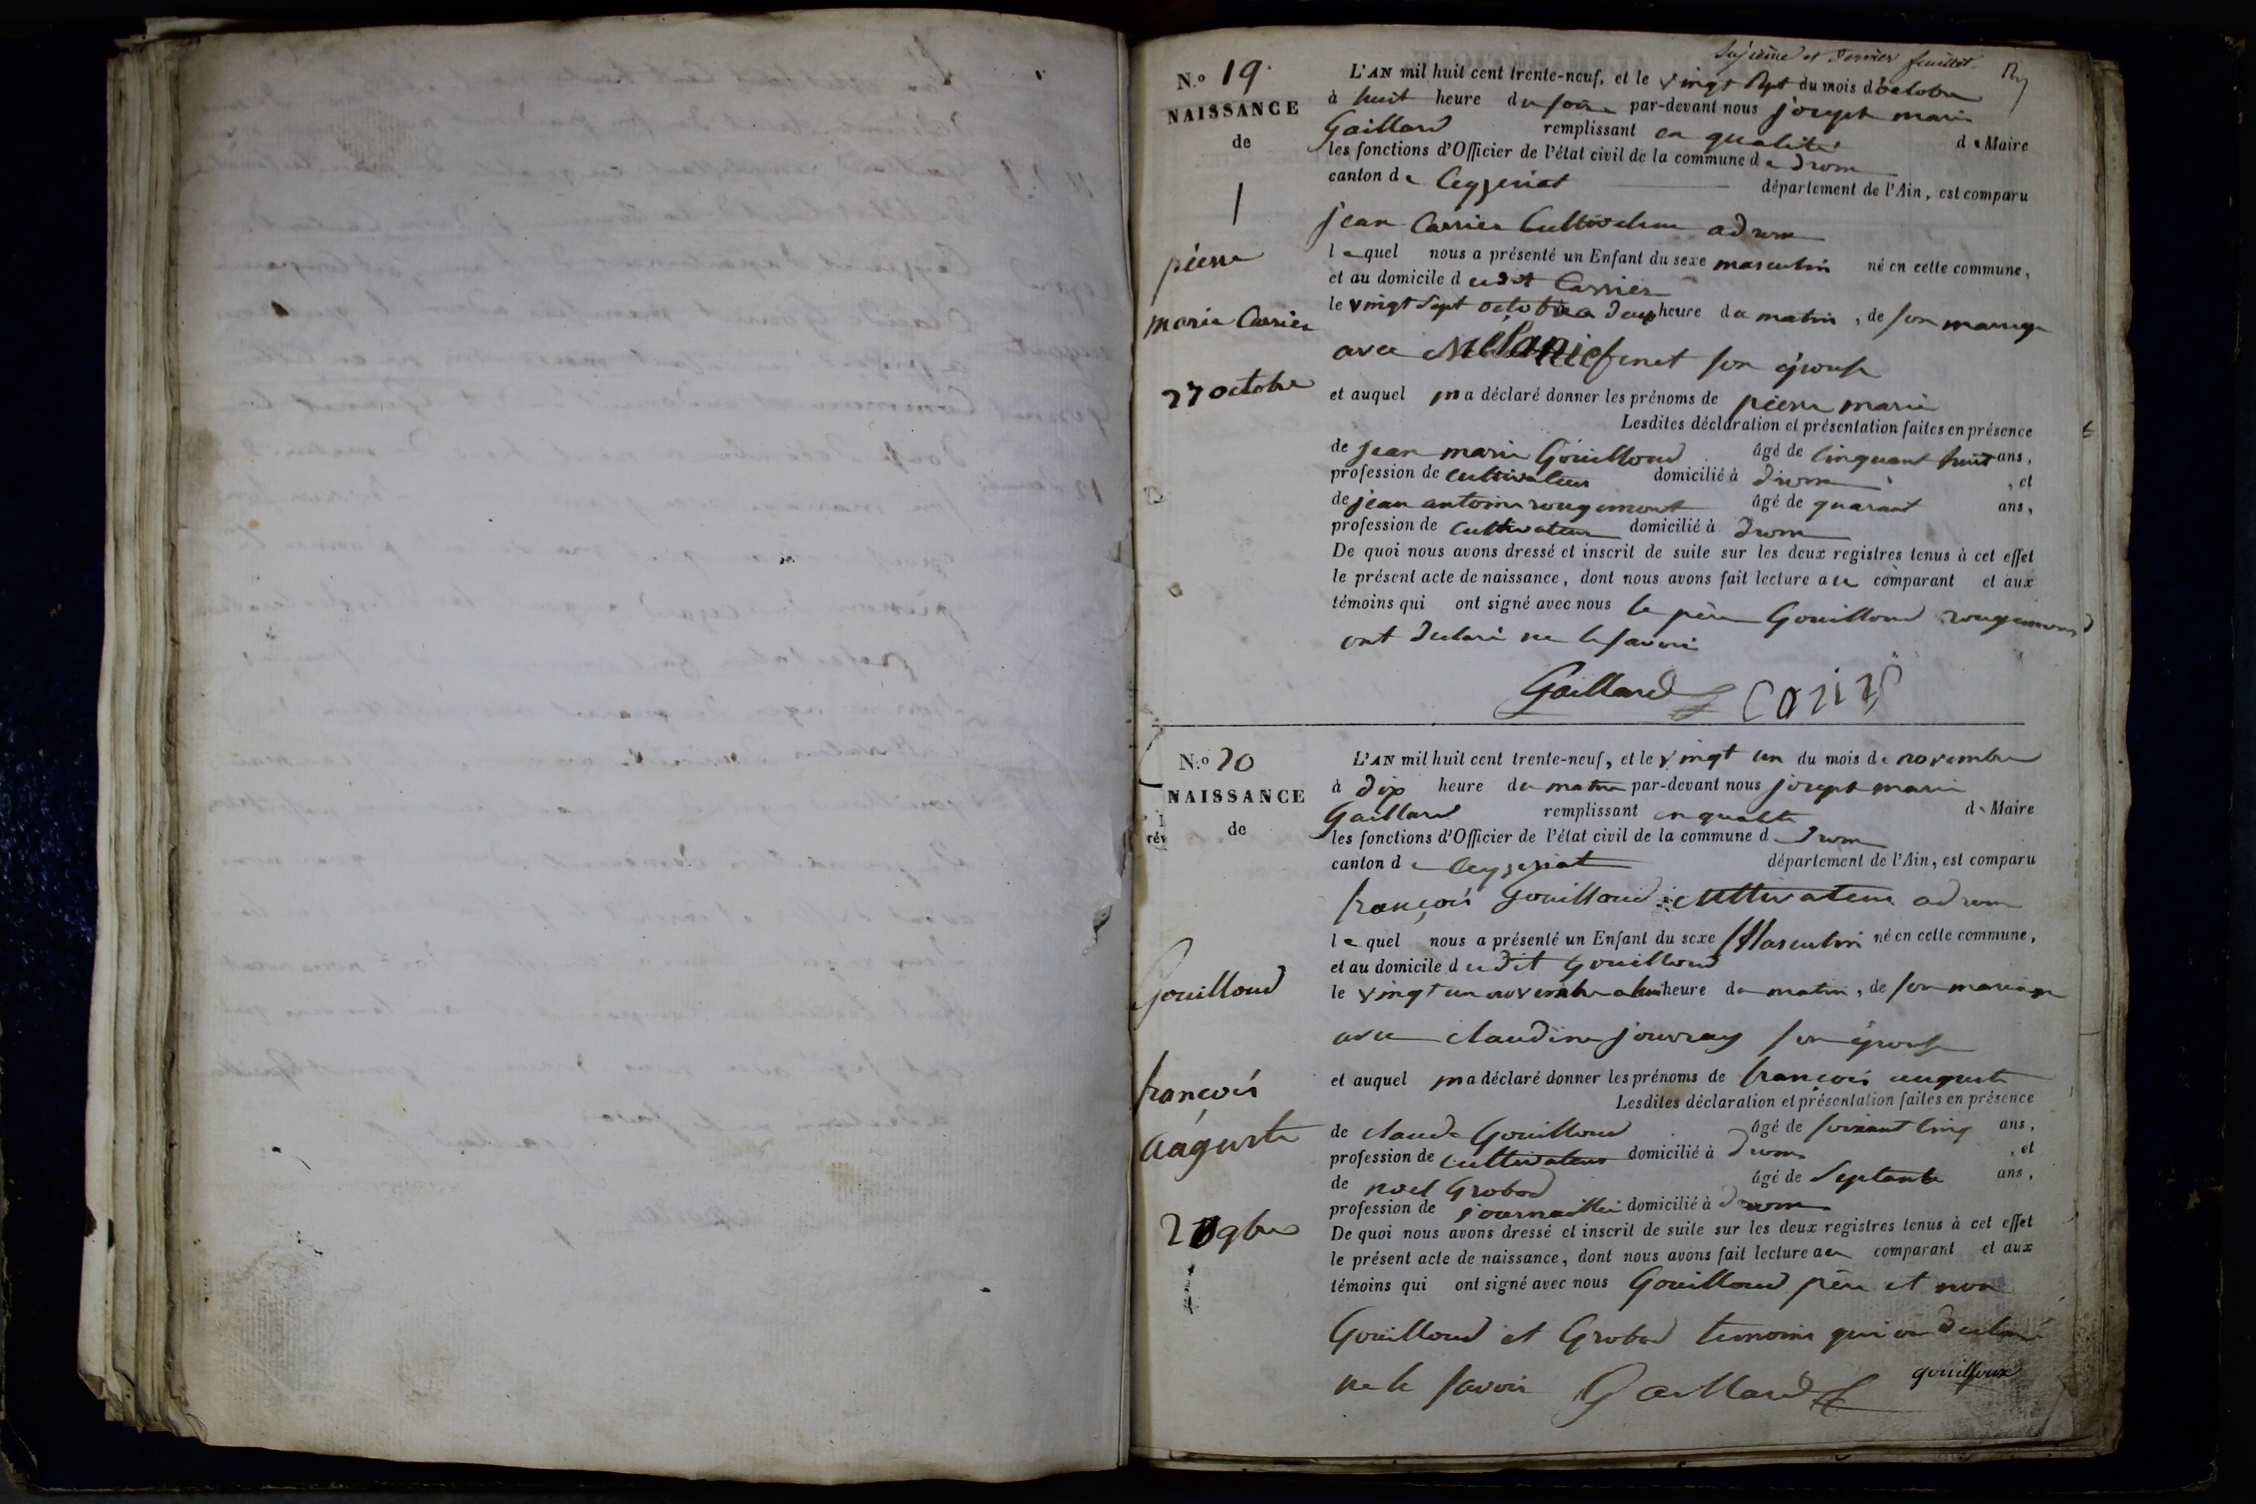 et dernier feuillet
N.o 19
NAISSANCE
de
pierre
marie Carrier
27 octobre
L'AN mil huit cent trente-neuf, et le vingt sept du mois d'octobre
à huit heure du soir par-devant nous joseph marie
Gaillard remplissant en qualité de Maire
les fonctions d'Officier de l'état civil de la commune de drom
canton de Ceyzeriat département de l'Ain, est comparu
jean Carrier Cultivateur a drom
lequel nous a présenté un Enfant du sexe masculin né en cette commune,
et au domicile dudit Carrier
le vingt sept octobre a deux heure du matin, de son mariage
avec Mélanie finet son épouse
et auquel ma déclaré donner les prénoms de pierre marie
Lesdites déclaration et présentation faites en présence
de jean marie Gouilloud âgé de Cinquant huit ans,
profession de cultivateur domicilié à drom, et
de jean antoine rougemont âgé de quarant ans,
profession de Cultivateur domicilié à drom
De quoi nous avons dressé et inscrit de suite sur les deux registres tenus à cet effet
le présent acte de naissance, dont nous avons fait lecture au comparant et aux
témoins qui ont signé avec nous le père Gouilloud rougemond
ont declaré ne le savoir
Gaillard
N.o 20
NAISSANCE
de
Gouilloud
françois
auguste
21 9bre
L'AN mil huit cent trente-neuf, et le vingt un du mois de novembre
à dix heure du matin par-devant nous joseph marie
Gaillard remplissant en qualité de Maire
les fonctions d'Officier de l'état civil de la commune d drom
canton de Ceyzeriat département de l'Ain, est comparu
françois Gouilloud cultivateur a drom
lequel nous a présenté un Enfant du sexe Masculin né en cette commune,
et au domicile dudit Gouilloud
le vingt un novembre a huit heure du matin, de son mariage
avec claudine jouvray son épouse
et auquel ma déclaré donner les prénoms de françois auguste
Lesdites déclaration et présentation faites en présence
de claude Gouilloud âgé de soixant cinq ans,
profession de cultivateur domicilié à drom, et
de noel Grobod âgé de septante ans,
profession de journaillier domicilié à drom
De quoi nous avons dressé et inscrit de suite sur les deux registres tenus à cet effet
le présent acte de naissance, dont nous avons fait lecture au comparant et aux
témoins qui ont signé avec nous Gouilloud père et non
Gouilloud et Grobod temoins qui on declaré
ne le savoir Gaillard gouilloux